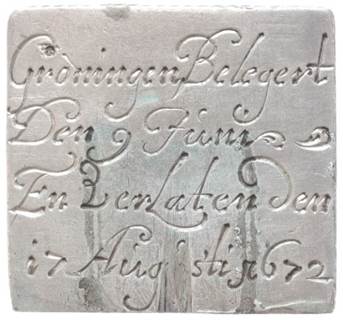 Groningen Belegert
Den 9 Juni
En Verlaten den
17 Augusti 1672